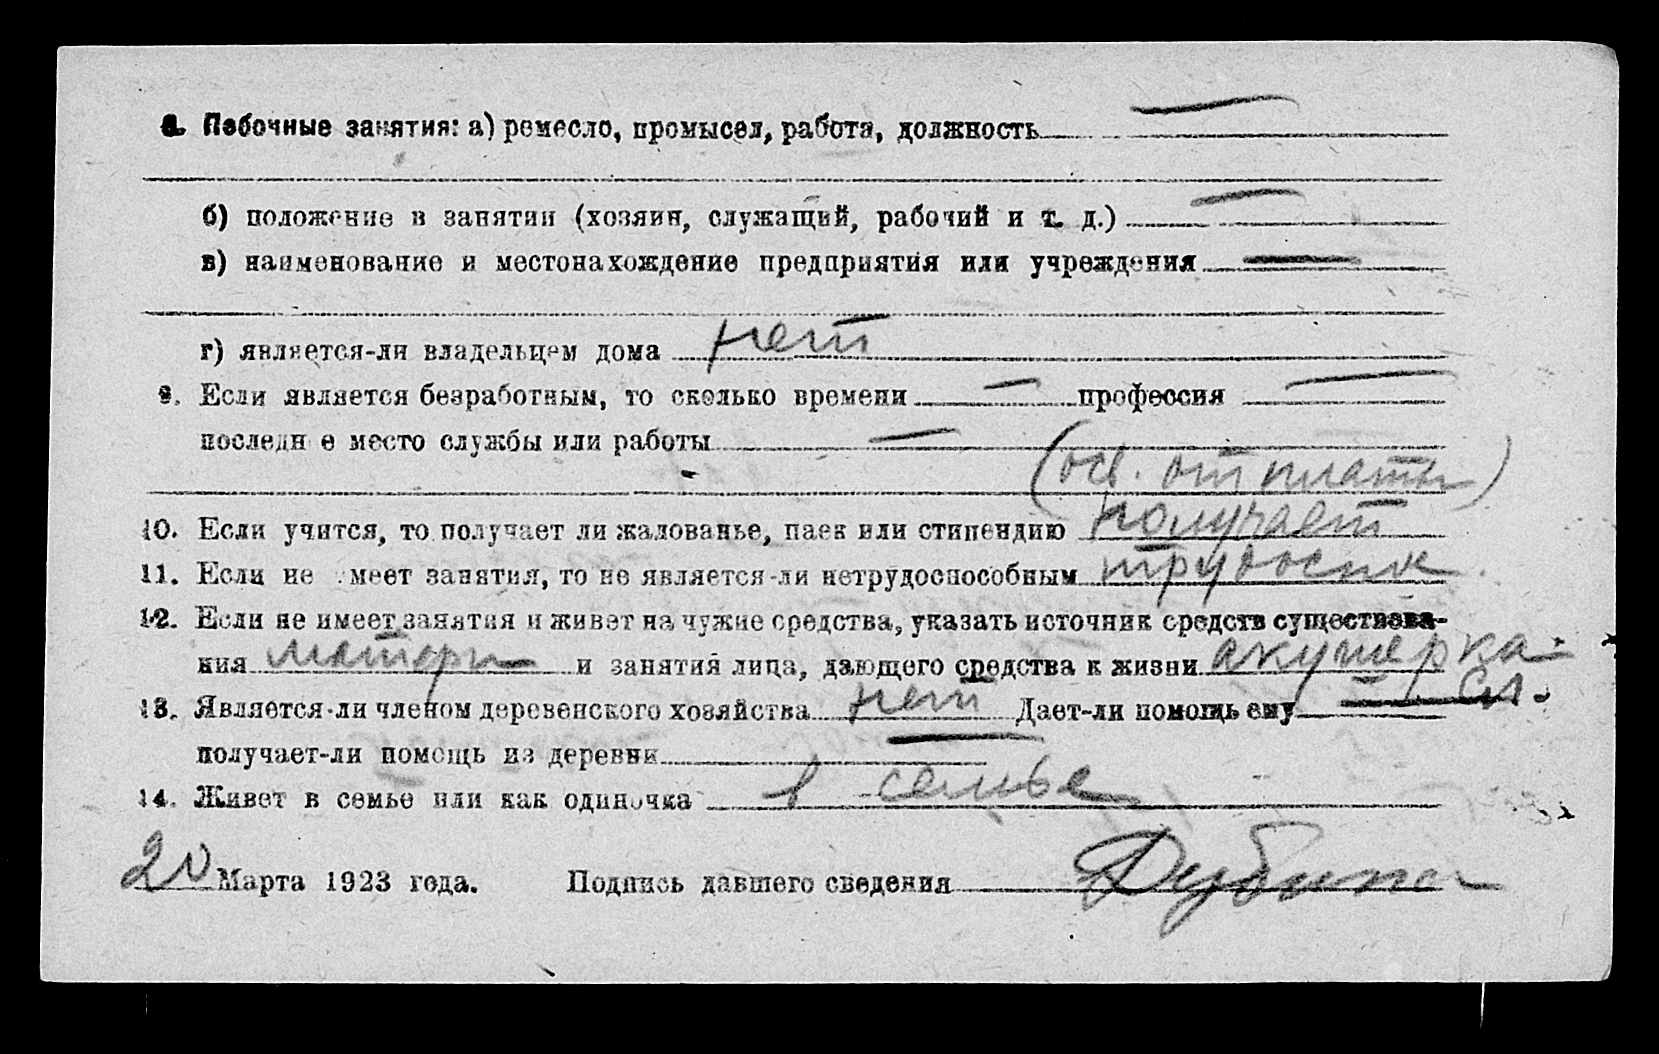 8. Побочные занятия: а) ремесло, промысел, работа, должность —
б) положение в занятии (хозяин, служащий, рабочий и т. д.) —
в) наименование и местонахождение предприятия или учреждения —
г) является-ли владельцем дома нет
9. Если является безработным, то сколько времени — профессия —
последнее место службы или работы —
(осв. от платы)
10. Если учится, то получает ли жалованье, паек или стипендию получает
11. Если не имеет занятия, то не является-ли нетрудоспособным трудоспос.
12. Если не имеет занятия и живет на чужие средства, указать источник средств существова-
ния матери и занятия лица, дающего средства к жизни акушерка
сл.
13. Является-ли членом деревенского хозяйства нет Дает-ли помощь ему —
получает-ли помощь из деревни —
14. Живет в семье или как одиночка в семье
20 Марта 1923 года. Подпись давшего сведения